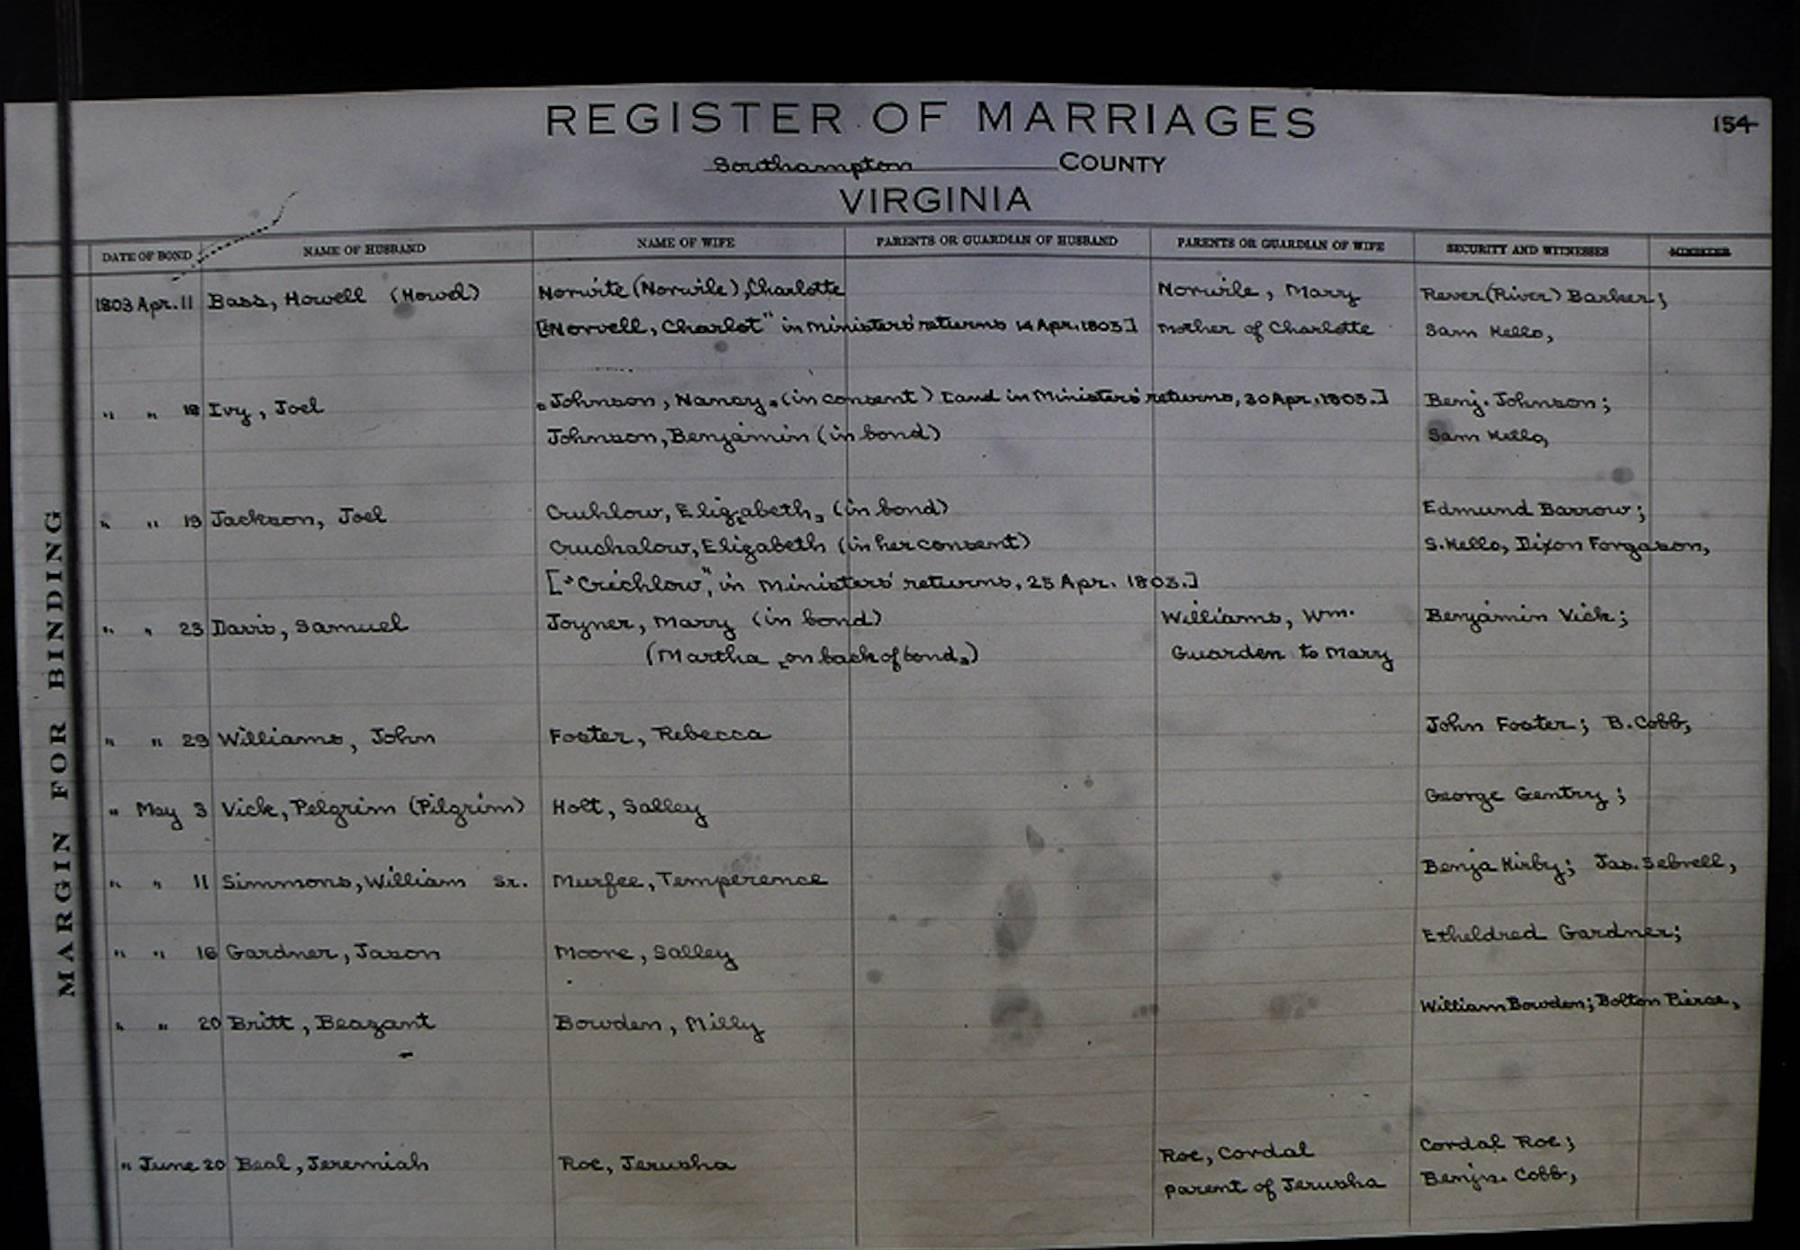 REGISTER OF MARRIAGES
154
Southampton COUNTY
VIRGINIA
DATE OF BOND NAME OF HUSBAND NAME OF WIFE PARENTS OR GUARDIAN OF HUSBAND PARENTS OR GUARDIAN OF WIFE SECURITY AND WITNESSES MINISTER
1803 Apr. 11 Bass, Howell (Howel) Norwite (Norwile), Charlotte Norwile, Mary Rever (River) Barker;
["Norvell, Charlot" in ministers' returns 14 Apr. 1803] mother of Charlotte Sam Kello,
" " 18 Ivy, Joel "Johnson, Nancy" (in consent) [and in Ministers' returns, 30 Apr. 1803.] Benj. Johnson;
Johnson, Benjamin (in bond) Sam Kello,
" " 19 Jackson, Joel Cruhlow, Elizabeth, (in bond) Edmund Barrow;
Cruchalow, Elizabeth (in her consent) S. Kello, Dixon Forgason,
["Crichlow", in Ministers' returns, 25 Apr. 1803.]
" " 23 Davis, Samuel Joyner, Mary (in bond) Williams, Wm. Benjamin Vick;
(Martha "on back of bond") Guarden to Mary
" " 29 Williams, John Foster, Rebecca John Foster; B. Cobb,
" May 3 Vick, Pelgrim (Pilgrim) Holt, Salley George Gentry;
" " 11 Simmons, William Sr. Murfee, Temperence Benja Kirby; Jas. Sebrell,
" " 16 Gardner, Jason Moore, Salley Etheldred Gardner;
" " 20 Britt, Beazant Bowden, Milly William Bowden; Bolton Pierce,
" June 20 Beal, Jeremiah Roe, Jerusha Roe, Cordal Cordal Roe;
parent of Jerusha Benjn. Cobb,
MARGIN FOR BINDING